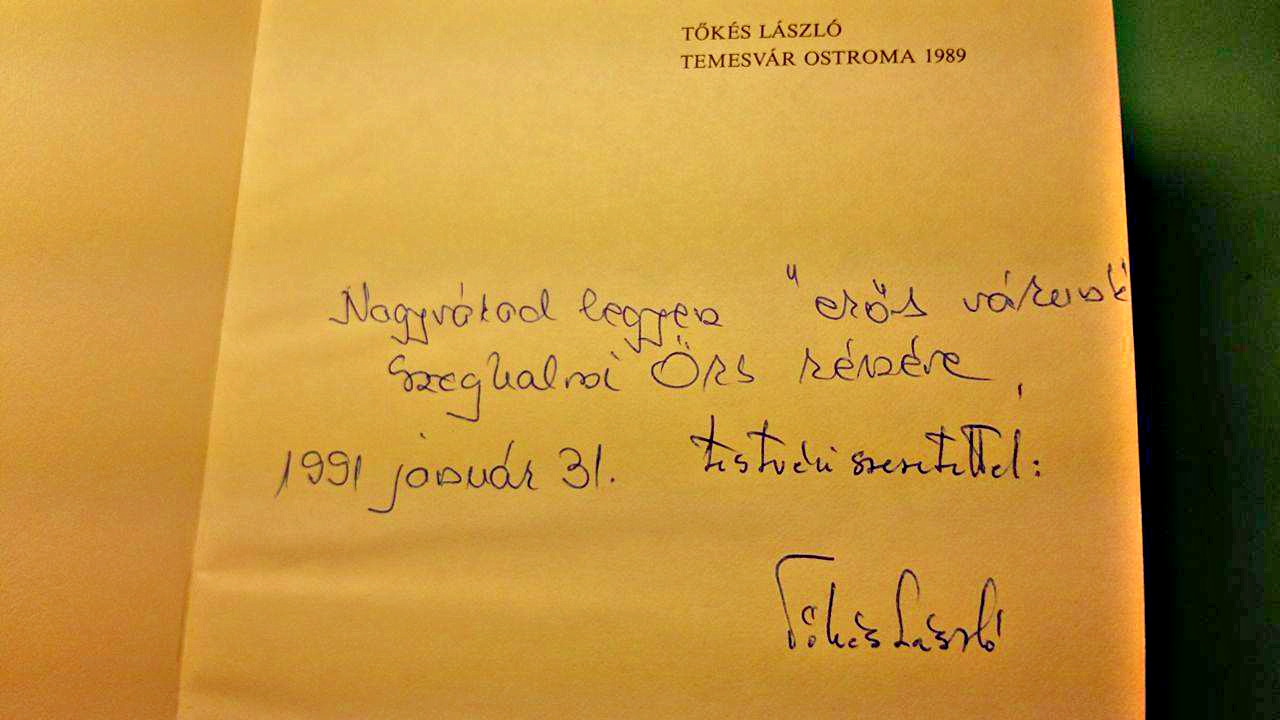 TŐKÉS LÁSZLÓ
TEMESVÁR OSTROMA 1989
Nagyvárad legyen "erős várunk"
Szeghalmi Örs részére,
1991 január 31. testvéri szeretettel:
Tőkés László